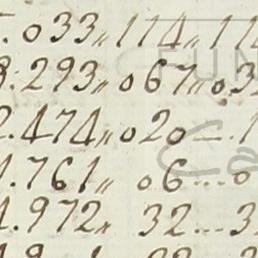 .033,,114,,114
3.293,,067,,03
2.474,,020....1
1.761,, 06...0
1.972,, 32...3